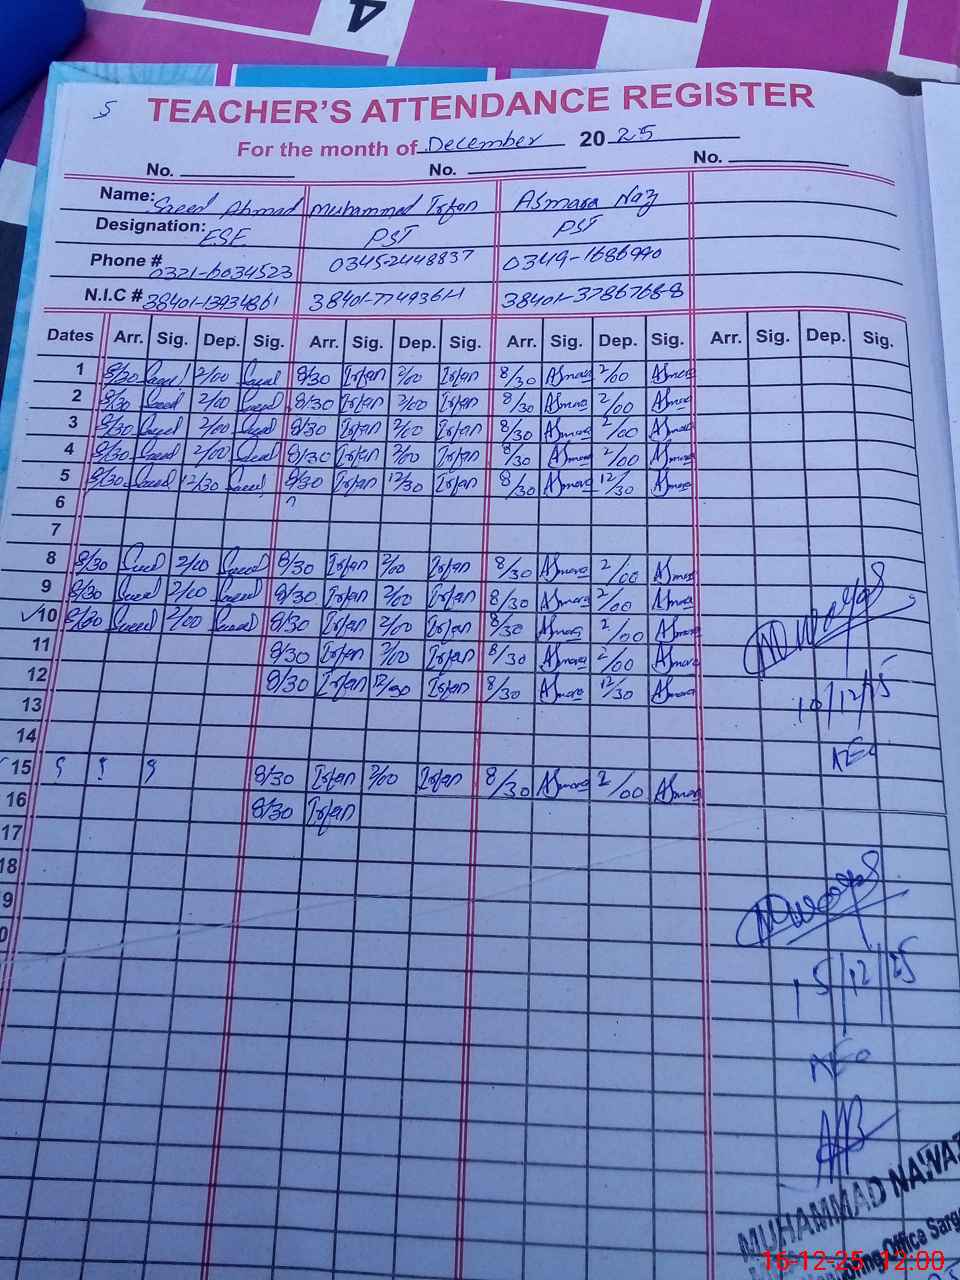 4
5
TEACHER'S ATTENDANCE REGISTER
For the month of December 2025
No. No. No.
Name: Saeed Ahmad Muhammad Irfan Asmara Naz
Designation: ESE PST PST
Phone # 0321-6034523 0345-2448837 0349-1686990
N.I.C # 38401-1393486 38401-7749361-1 38401-3786768-8
Dates Arr. Sig. Dep. Sig. Arr. Sig. Dep. Sig. Arr. Sig. Dep. Sig. Arr. Sig. Dep. Sig.
1 8/30 Saeed 2/00 Saeed 8/30 Irfan 2/00 Irfan 8/30 Asmara 2/00 Asmara
2 8/30 Saeed 2/00 Saeed 8/30 Irfan 2/00 Irfan 8/30 Asmara 2/00 Asmara
3 8/30 Saeed 2/00 Saeed 8/30 Irfan 2/00 Irfan 8/30 Asmara 2/00 Asmara
4 8/30 Saeed 2/00 Saeed 8/30 Irfan 2/00 Irfan 8/30 Asmara 2/00 Asmara
5 8/30 Saeed 12/30 Saeed 8/30 Irfan 12/30 Irfan 8/30 Asmara 12/30 Asmara
6
7
8 8/30 Saeed 2/00 Saeed 8/30 Irfan 2/00 Irfan 8/30 Asmara 2/00 Asmara
9 8/30 Saeed 2/00 Saeed 8/30 Irfan 2/00 Irfan 8/30 Asmara 2/00 Asmara
10 8/30 Saeed 2/00 Saeed 8/30 Irfan 2/00 Irfan 8/30 Asmara 2/00 Asmara
11 8/30 Irfan 2/00 Irfan 8/30 Asmara 2/00 Asmara
12 8/30 Irfan 12/30 Irfan 8/30 Asmara 12/30 Asmara
13
10/12/25
14
AEO
15 8/30 Irfan 2/00 Irfan 8/30 Asmara 2/00 Asmara
16 8/30 Irfan
17
18
9
0
15/12/25
AEO
MUHAMMAD NAWAZ
Office Sarg
16-12-25 12:00